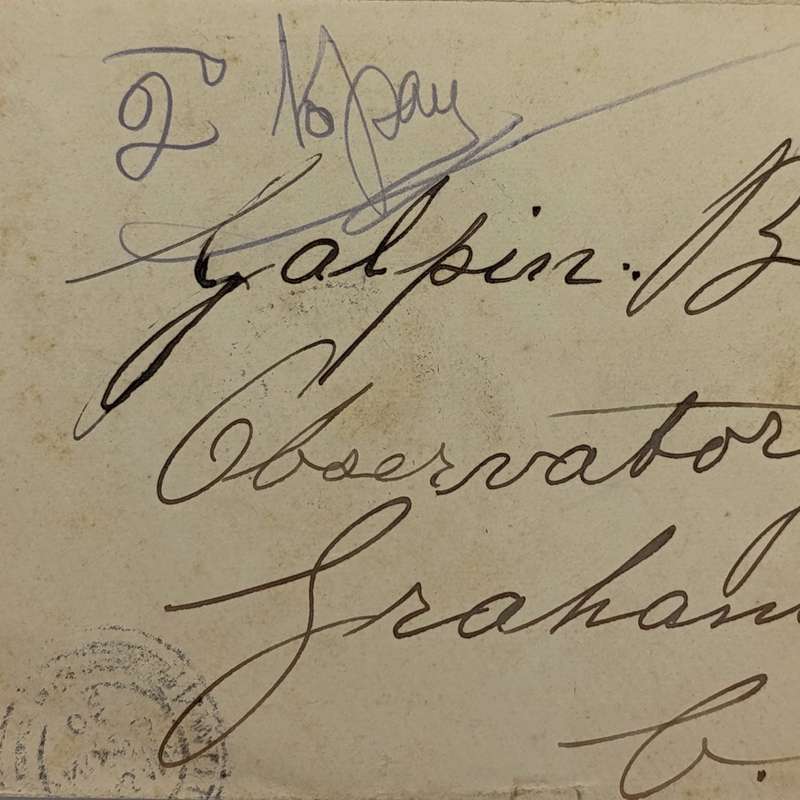 2d To pay
Galpin. B
Observatory
Graham
C.